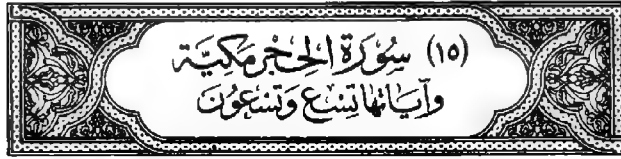 (١٥) سُوْرَةُ الْحِجْرِ مَكِّيَّة
وَآيَاتُهَا تِسْعٌ وَتِسْعُوْنَ